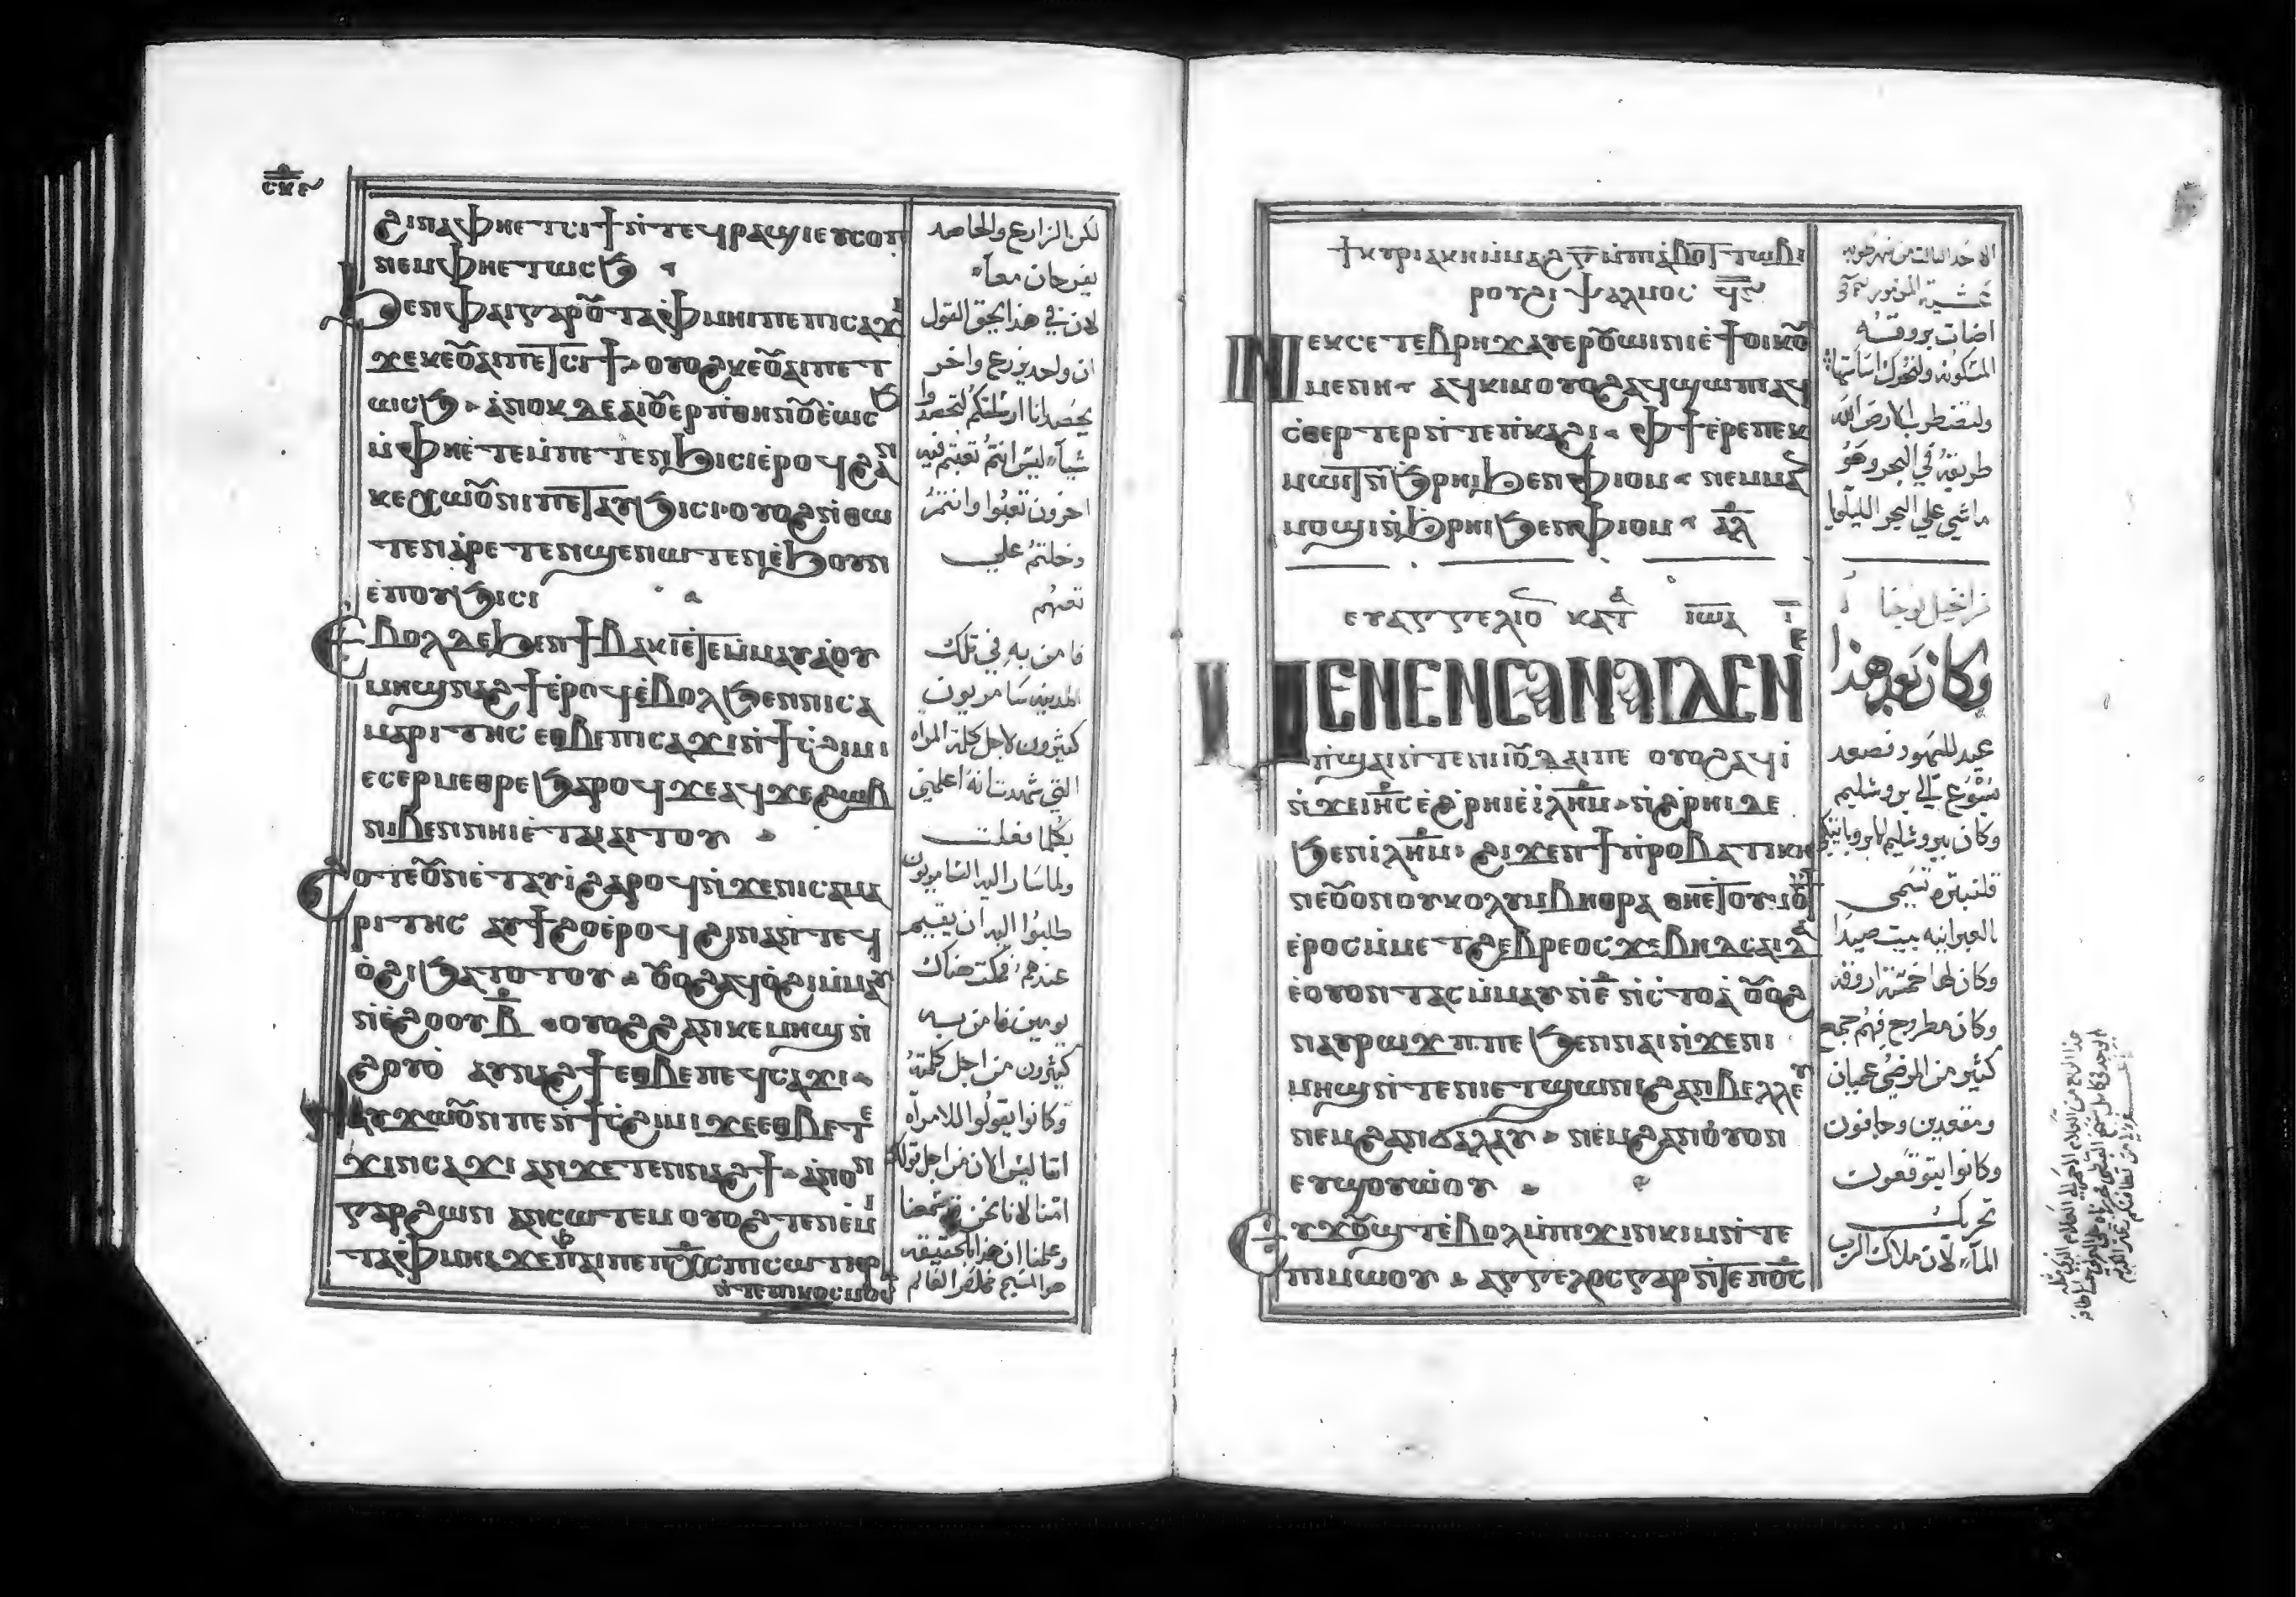 ⲥⲕⲋ
ϩⲓⲛⲁ ⲫⲏⲉⲧⲥⲓϯ ⲛⲧⲉϥⲣⲁϣⲓ ⲉⲩⲥⲟⲡ
ⲛⲉⲙ ⲫⲏⲉⲧⲱⲥϧ
ϧⲉⲛ ⲫⲁⲓ ⲅⲁⲣ ⲟⲩⲧⲁⲫⲙⲏⲓ ⲡⲉ ⲡⲓⲥⲁϫⲓ
ϫⲉ ⲕⲉⲟⲩⲁⲓ ⲡⲉⲧⲥⲓϯ ⲟⲩⲟϩ ⲕⲉⲟⲩⲁⲓ ⲡⲉⲧ
ⲱⲥϧ ⲁⲛⲟⲕ ⲇⲉ ⲁⲓⲟⲩⲉⲣⲡ ⲑⲏⲛⲟⲩ ⲉⲱⲥϧ
ⲙⲫⲏⲉⲧⲉ ⲙⲡⲉⲧⲉⲛϧⲓⲥⲓ ⲉⲣⲟϥ ϩⲁⲛ
ⲕⲉⲭⲱⲟⲩⲛⲓ ⲡⲉⲧⲁⲩϧⲓⲥⲓ ⲟⲩⲟϩ ⲛⲑⲱ
ⲧⲉⲛ ⲁⲣⲉⲧⲉⲛϣⲉⲛⲱⲧⲉⲛ ⲉϧⲟⲩⲛ
ⲉⲡⲟⲩϧⲓⲥⲓ
ⲉⲃⲟⲗ ⲇⲉ ϧⲉⲛ ϯⲃⲁⲕⲓ ⲉⲧⲉⲙⲙⲁⲩ ⲁⲟⲩ
ⲙⲏϣ ⲛⲁϩϯ ⲉⲣⲟϥ ⲉⲃⲟⲗ ϧⲉⲛ ⲛⲓⲥⲁ
ⲙⲁⲣⲓⲧⲏⲥ ⲉⲑⲃⲉ ⲡⲓⲥⲁϫⲓ ⲛϯⲥϩⲓⲙⲓ
ⲉⲥⲉⲣⲙⲉⲑⲣⲉ ϧⲁⲣⲟϥ ϫⲉ ⲁϥϫⲉ ϩⲱⲃ
ⲛⲓⲃⲉⲛ ⲛⲏⲓ ⲉⲧⲁⲓⲁⲓⲧⲟⲩ
ϩⲟⲧⲉ ⲟⲩⲛ ⲉⲧⲁⲩⲓ ϩⲁⲣⲟϥ ⲛϫⲉ ⲛⲓⲥⲁⲙⲁ
ⲣⲓⲧⲏⲥ ⲁⲩϯϩⲟ ⲉⲣⲟϥ ϩⲓⲛⲁ ⲛⲧⲉϥ
ⲟϩⲓ ϧⲁⲧⲟⲧⲟⲩ ⲟⲩⲟϩ ⲁϥⲟϩⲓ ⲙⲙⲁⲩ
ⲛⲉϩⲟⲟⲩ ⲃ ⲟⲩⲟϩ ϩⲁⲛⲕⲉⲙⲏϣ ⲛ
ϩⲟⲩⲟ ⲁⲩⲛⲁϩϯ ⲉⲑⲃⲉ ⲡⲉϥⲥⲁϫⲓ
ⲛⲁⲩϫⲱ ⲟⲩⲛ ⲡⲉ ⲛϯⲥϩⲓⲙⲓ ϫⲉ ⲉⲑⲃⲉ ⲧⲉ
ϫⲓⲛⲥⲁϫⲓ ⲁⲛ ϫⲉ ⲧⲉⲛⲛⲁϩϯ ⲁⲛⲟⲛ
ⲅⲁⲣ ϩⲱⲛ ⲁⲛⲥⲱⲧⲉⲙ ⲟⲩⲟϩ ⲧⲉⲛⲉⲙⲓ
ⲧⲁⲫⲙⲏⲓ ϫⲉ ⲫⲁⲓ ⲡⲉ ⲡⲭⲥ ⲡⲥⲱⲧⲏⲣ
ⲙⲡⲓⲕⲟⲥⲙⲟⲥ
لكن الزارع والحاصد
يفرحان معاً
لان في هذا يحق القول
ان واحد يزرع واخر
يحصد انا ارسلتكم لتحصدوا
شياً ليس انتم تعبتم فيه
اخرون تعبوا وانتم
دخلتم علي
تعبهم
فامن به في تلك
المدينه سامريون
كثيرون لاجل كلمة المراه
التي شهدت انه اعلمني
بكلما فعلت
ولما سار اليه السامريون
طلبوا اليه ان يقيم
عندهم فمكث هناك
يومين فامن به
كثيرون من اجل كلمته
وكانوا يقولوا للامراه
اننا ليس الان من اجل قولك
امنا لاننا نحن سمعنا
وعلمنا ان هذا بالحقيقه
هو المسيح مخلص العالم
ϯⲕⲩⲣⲓⲁⲕⲏ ⲙⲙⲁϩ ⲅ ⲙⲡⲓⲁⲃⲟⲧ ⲧⲱⲃⲓ
ⲣⲟⲩϩⲓ ⲯⲁⲗⲙⲟⲥ ϥⲋ
ⲛⲉⲕⲥⲉⲧⲉⲃⲣⲏϫ ⲁⲩⲉⲣⲟⲩⲱⲓⲛⲓ ⲉϯⲟⲓⲕⲟⲩ
ⲙⲉⲛⲏ ⲁϥⲕⲓⲙ ⲟⲩⲟϩ ⲁϥϣⲱⲡⲓ ⲁϥ
ⲥⲑⲉⲣⲧⲉⲣ ⲛⲧⲉ ⲡⲕⲁϩⲓ ⲫϯ ⲉⲣⲉ ⲡⲉⲕ
ⲙⲱⲓⲧ ⲛϧⲣⲏⲓ ϧⲉⲛ ⲫⲓⲟⲙ ⲛⲉⲙ ⲙⲁ
ⲙⲟϣⲓ ⲛϧⲣⲏⲓ ϧⲉⲛ ⲫⲓⲟⲙ ⲁⲗ
ⲉⲩⲁⲅⲅⲉⲗⲓⲟ ⲕⲁⲧ ⲓⲱⲁ
ⲙⲉⲛⲉⲛⲥⲁ ⲛⲁⲓ ⲇⲉ ⲛⲉ
ⲡϣⲁⲓ ⲛⲧⲉ ⲛⲓⲓⲟⲩⲇⲁⲓ ⲡⲉ ⲟⲩⲟϩ ⲁϥⲓ
ⲛϫⲉ ⲓⲏⲥ ⲉϩⲣⲏⲓ ⲉⲓⲗⲏⲙ ⲛϩⲣⲏⲓ ⲇⲉ
ϧⲉⲛ ⲓⲗⲏⲙ ϩⲓϫⲉⲛ ϯⲡⲣⲟⲃⲁⲧⲓⲕⲏ
ⲛⲉⲟⲩⲟⲛ ⲟⲩⲕⲟⲗⲩⲙⲃⲏⲑⲣⲁ ⲑⲏⲉⲧⲟⲩⲙⲟⲩϯ
ⲉⲣⲟⲥ ⲙⲙⲉⲧϩⲉⲃⲣⲉⲟⲥ ϫⲉ ⲃⲏⲇⲥⲁⲓⲇⲁ
ⲉⲟⲩⲟⲛⲧⲁⲥ ⲙⲙⲁⲩ ⲛⲉ ⲛⲥⲧⲟⲁ ⲟⲩⲟϩ
ⲛⲁⲩⲣⲱϫⲡ ⲡⲉ ϧⲉⲛ ⲛⲁⲓ ⲛϫⲉ ⲛⲓ
ⲙⲏϣ ⲛⲧⲉ ⲛⲏⲉⲧϣⲱⲛⲓ ϩⲁⲛⲃⲉⲗⲗⲉⲩ
ⲛⲉⲙ ϩⲁⲛϭⲁⲗⲉⲩ ⲛⲉⲙ ϩⲁⲛⲟⲩⲟⲛ
ⲉⲩϣⲟⲩⲱⲟⲩ
ⲉⲩϫⲟⲩϣⲧ ⲉⲃⲟⲗ ⲙⲡϫⲓⲛⲕⲓⲙ ⲛⲧⲉ
ⲡⲓⲙⲱⲟⲩ ⲁⲅⲅⲉⲗⲟⲥ ⲅⲁⲣ ⲛⲧⲉ ⲡⲟⲥ
الاحد الثالث من شهر طوبه
عشية المزمور
اضات بروقه
المسكونه ولتتحرك اساساتها
ولتضطرب الارض الله
طريقه في البحر وهو
ماشي علي البحر الليلويا
من انجيل يوحنا
وكان بعد هذا
عيد لليهود فصعد
يسوع الي يروشليم
وكان بيروشليم ابروباتيكي
تسمي
بالعبرانيه بيت صيدا
وكان لها خمسة اروقه
وكان مطروح فيهم جمع
كثير من المرضي عميان
ومقعدين وجافون
وكانوا يتوقعون
تحريك
الماء لان ملاك الرب